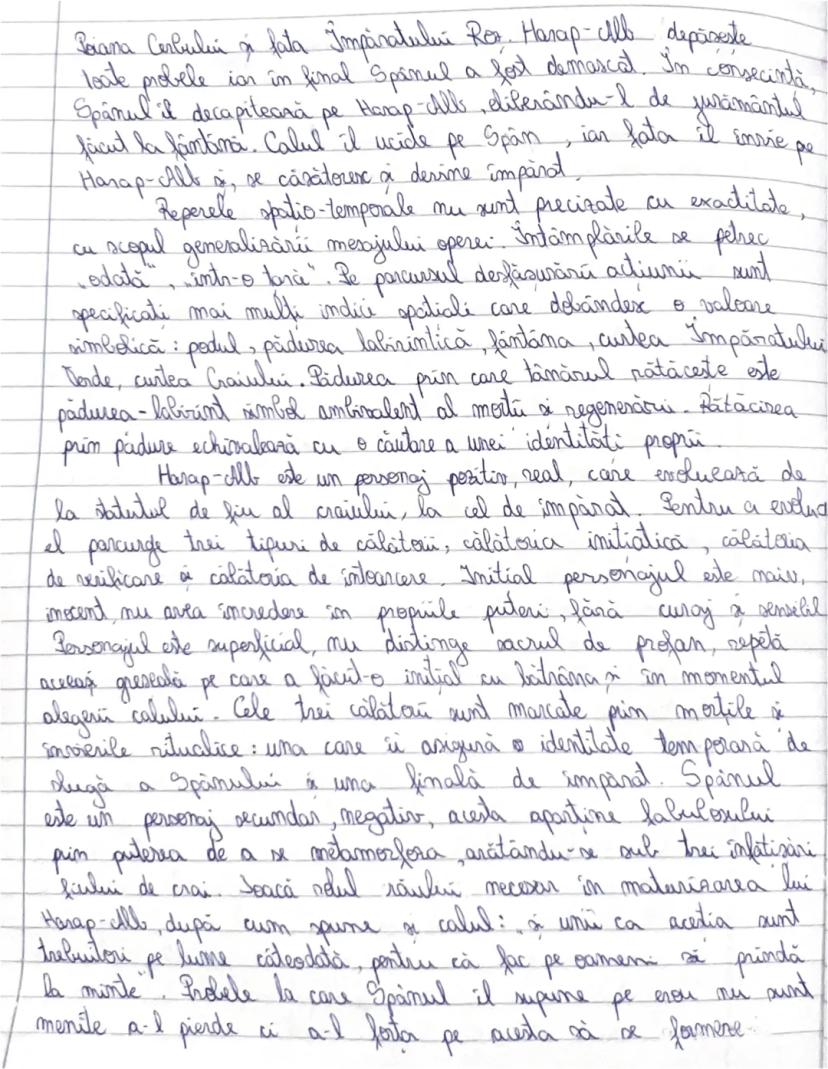 Poiana Cerbului și fata Împăratului Roș. Harap-Alb depășește
toate probele iar în final Spânul a fost demascat. În consecință,
Spânul îl decapitează pe Harap-Alb, eliberându-l de jurământul
făcut la fântână. Calul îl ucide pe Spân, iar fata îl învie pe
Harap-Alb și, se căsătoresc și devine împărat.
Reperele spatio-temporale nu sunt precizate cu exactitate,
cu scopul generalizării mesajului operei. Întâmplările se petrec
„odată", „într-o țară". Pe parcursul desfășurării acțiunii sunt
specificati mai mulți indici spatiali care dobândesc o valoare
simbolică: podul, pădurea labirintică, fântâna, curtea Împăratului
Verde, curtea Craiului. Pădurea prin care tânărul rătăcește este
pădurea-labirint simbol ambivalent al morții și regenerării. Rătăcirea
prin pădure echivalează cu o căutare a unei identități proprii.
Harap-Alb este un personaj pozitiv, real, care evoluează de
la statutul de fiu al craiului, la cel de împărat. Pentru a evolua
el parcurge trei tipuri de călătorii, călătoria inițiatică, călătoria
de verificare și călătoria de întoarcere. Initial personajul este naiv,
inocent, nu avea încredere în propriile puteri, fără curaj și sensibil
Personajul este superficial, nu distinge sacrul de profan, repetă
aceeași greșeală pe care a făcut-o inițial cu bătrâna și în momentul
alegerii calului. Cele trei călătorii sunt marcate prin morțile și
învierile ritualice: una care îi asigură o identitate temporară de
slugă a Spânului și una finală de împărat. Spânul
este un personaj secundar, negativ, acesta aparține fabulosului
prin puterea de a se metamorfoza, arătându-se sub trei înfățișări
fiului de crai. Joacă rolul răului necesar în maturizarea lui
Harap-Alb, după cum spune și calul: „și unii ca aceștia sunt
trebuitori pe lume câteodată, pentru că fac pe oameni să prindă
la minte". Probele la care Spânul îl supune pe erou nu sunt
menite a-l pierde ci a-l forța pe acesta să se formeze